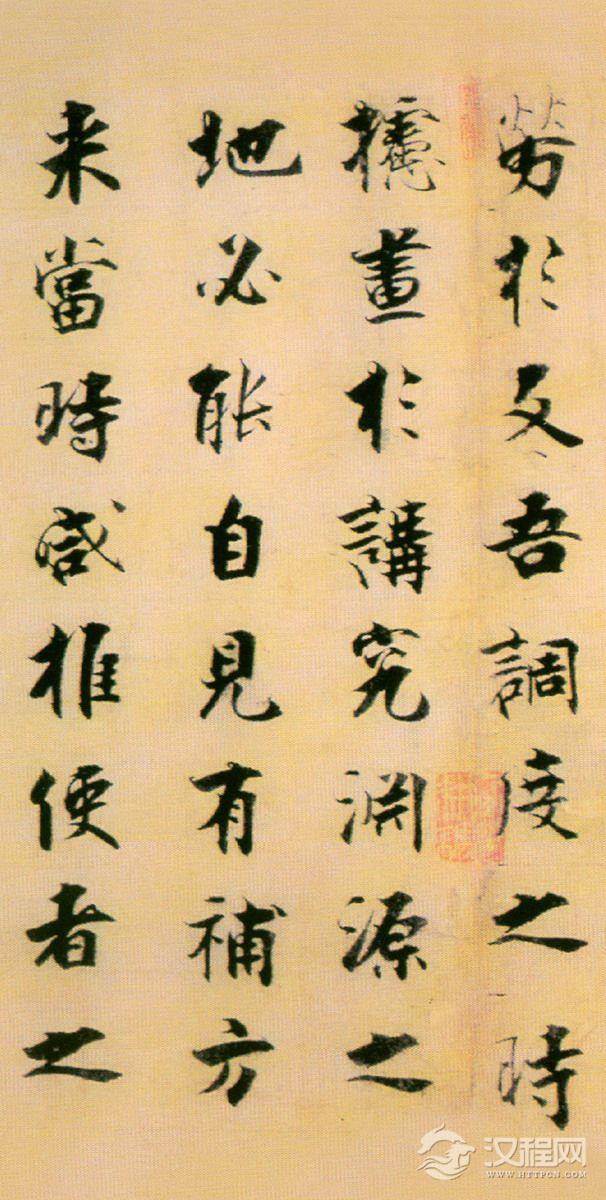 勞於文吾調度之時
攄畫於講究淵源之
地必能自見有補方
来當時咸推使者之
汉程网
WWW.HTTPCN.COM